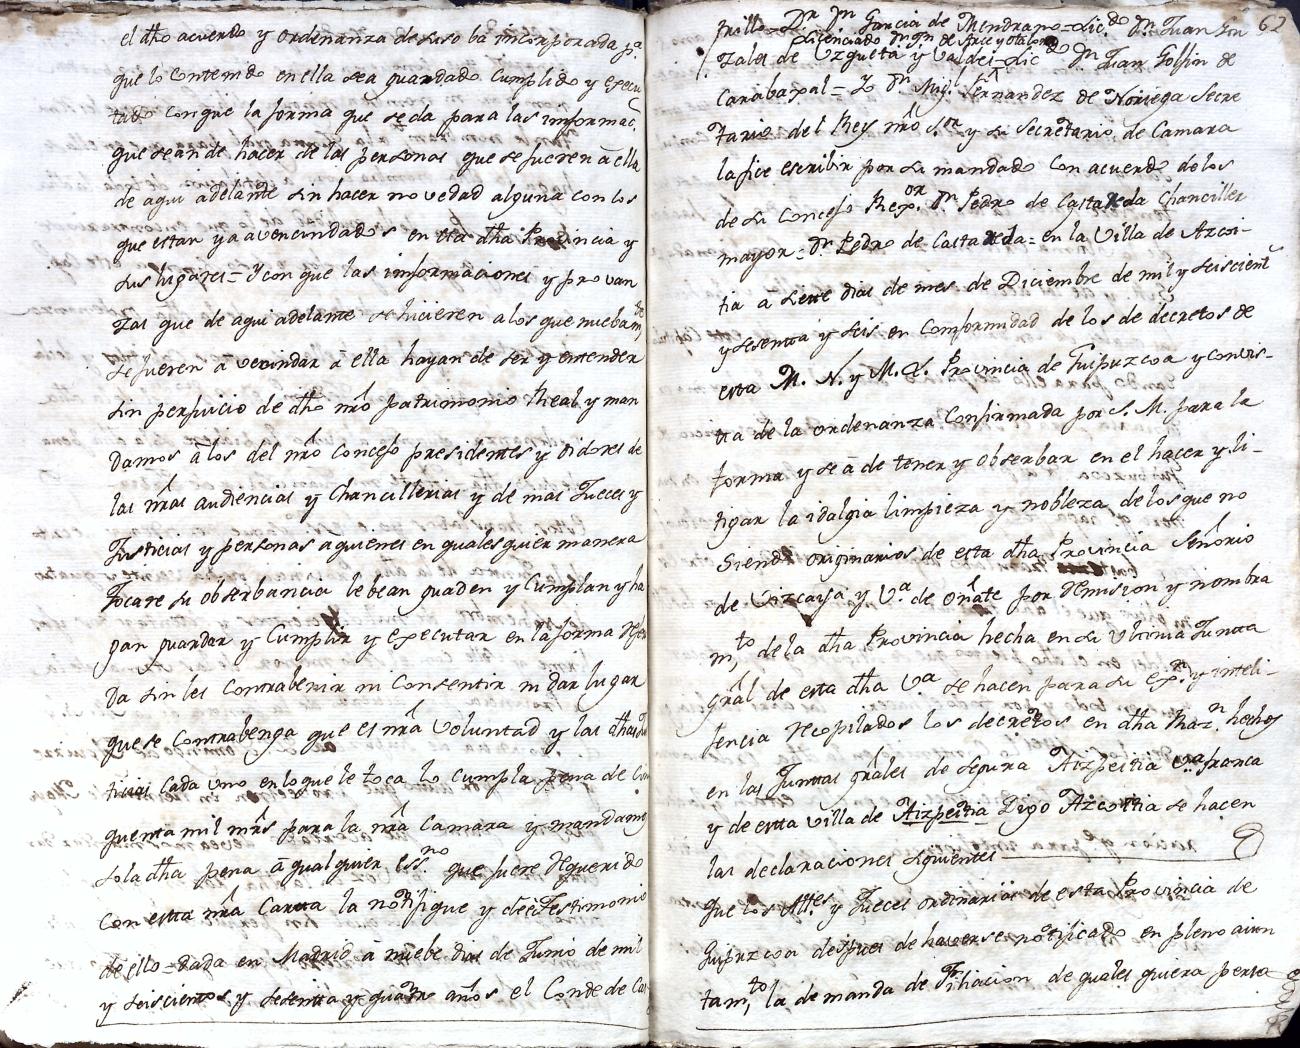 el dho acuerdo y ordenanza de suso ba incorporada pa
que lo contenido en ella sea guardado Cumplido y execu
tado conque la forma que se da para las informac.
que se an de hacer de las personas que se fueren â ella
de aqui adelante sin hacer novedad alguna con los
que estan ya avencindados en esta dha Provincia y
sus lugares = Y con que las informaciones y provan
zas que de aqui adelante se hicieren a los que nuebamte
se fueren â vecindar â ella hayan de ser y entender
sin perjuicio de dho nrô patrimonio Real y man
damos â los del nrô Concejo presidentes y oidores de
las nrâs audiencias y Chancillerias y de mas Jueces y
Justicias y personas âquienes en qualesquier manera
tocare su obserbancia le bean guaden y Cumplan y ha
gan guardar y Cumplir y executar en la forma
da sin les Contrabenir ni Consentir ni dar lugar
que se Contrabenga que es nrâ voluntad y las dhas Jus
ticias cada uno en lo que le toca lo cumpla pena de cin
quenta mil mrs para la nrâ Camara y mandamos
so la dha pena â qualquier essno que fuere requerido
con esta nrâ Carta la notifique y de testimonio
de ello = dada en Madrid â nuebe dias de Junio de mil
y seiscientos y sesenta y quatro años el Conde de Cas
62
trillo = Dr Dn Garcia de Medrano = Licdo Dn Juan Gon
Licenciado Dn
zales de Uzqueta y Valdes = Licdo Dn Juan Golfin de
Carabaxal = Yo Dn Migl Fernandez de Noriega Secre
tario del Rey nrô Sor y su Secretario de Camara
la fice escribir por su mandado con acuerdo de los
de su Concejo Rexor Dn Pedro de Castañeda Chanciller
mayor = Dn Pedro de Castañeda = en la Villa de Azcoi-
tia a siete dias de mes de Diciembre de mil y seiscient
y sesenta y seis en Conformidad de los de decretos de
esta M. N. y M. L. Provincia de Guipuzcoa y convis-
ta de la ordenanza Confirmada por S. M. para la
forma y se â de tener y obserbar en el hacer y li-
tigar la idalgia limpieza y nobleza de los que no
Siendo originarios de esta dha Provincia Señorio
de Vizcaya y Va de oñate por remision y nombra
mto de la dha Provincia hecha en su Ultima Junta
Grâl de esta dha Va se hacen para su expn y inteli-
jencia recopilados los decretos en dha Razn hechos
en las Juntas grâles de segura Aizpeitia Va franca
y de esta villa de Aizpeitia Digo Azcoitia se hacen
las declaraciones siguientes
Que los Alles y Jueces ordinarios de esta Provincia de
Guipuzcoa despues de haverse notificado en pleno aiun
tamto la demanda de Filiacion de quales quiera perso